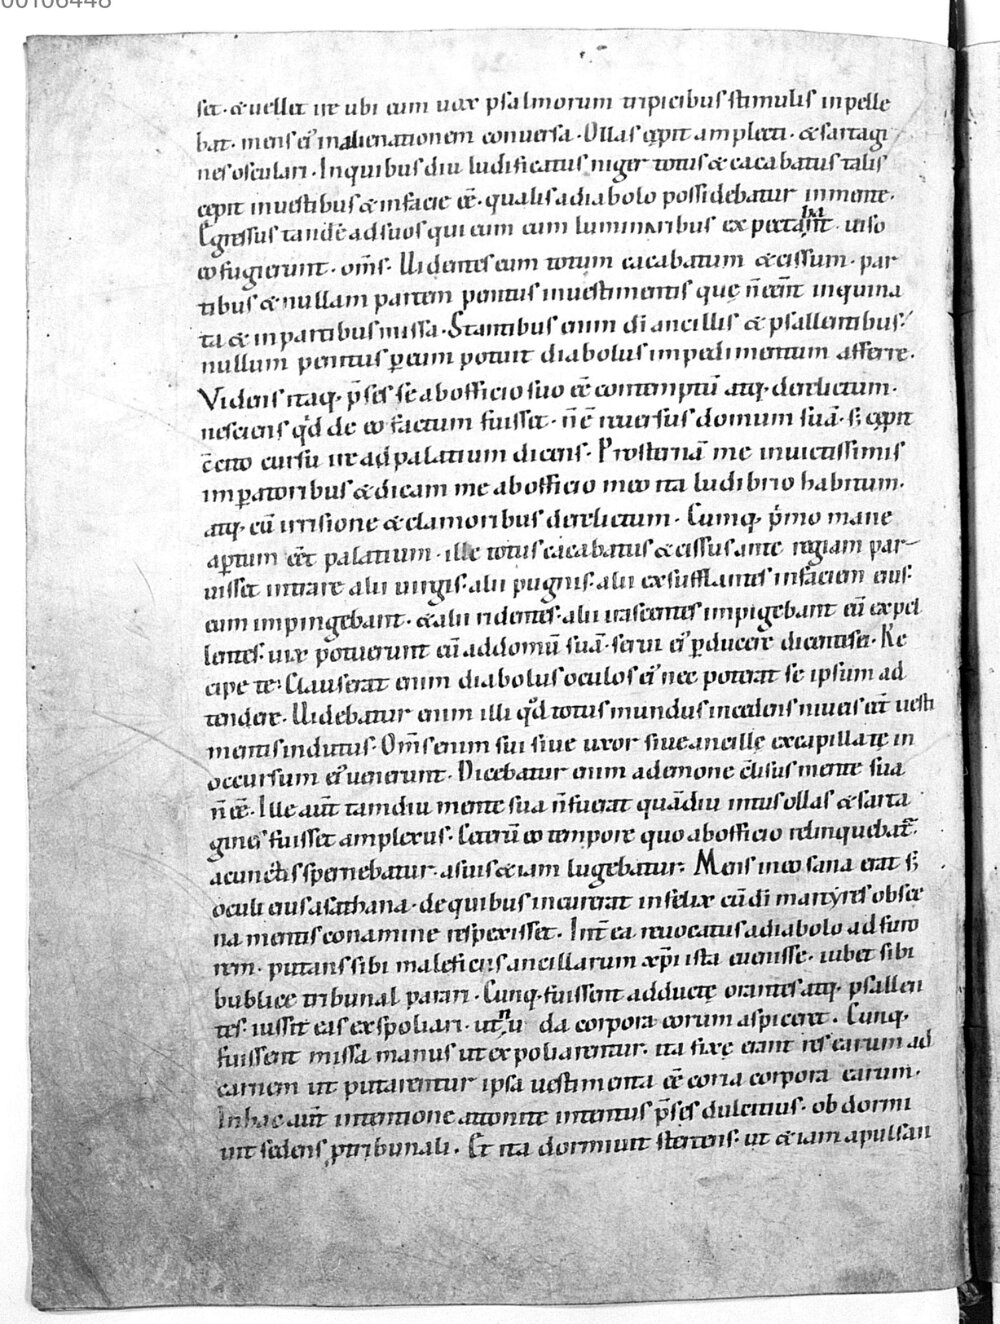 00106448
set · & uellet ire ubi eum uox psalmorum tripicibus stimulis inpelle
bat · mens ei' in alienationem conversa · Ollas cępit amplecti · & sartagi
nes osculari · Inquibus diu ludificatus niger totus & cacabatus talis
cepit inuestibus & infacie eē · qualis adiabolo possidebatur inmente ·
Egressus tandē ad suos qui eum cum luminaribus expectant · uiso
eo fugierunt · om̄s · Uidentes eum totum cacabatum & cissum · par
tibus & nullam partem penitus inuestimentis quę n̄ eēnt inquina
ta & in partibus missa · Stantibus enim dī ancillis & psallentibus /
nullum penitus p eum potuit diabolus impedimentum afferre ·
Videns itaq · p̄ses se ab officio suo eē contemptū atq · derelictum ·
nesciens qd̄ de eo factum fuisset · n̄ ē reuersus domum suā · s; cępit
c̄ cito cursu ire ad palatium dicens · Prosternā me inuictissimis
imperatoribus & dicam me ab officio meo ita ludibrio habitum ·
atq · cū irrisione & clamoribus derelictum · Cumq · p̄mo mane
aptum eēt palatium · ille totus cacabatus & cissus ante regiam par
uisset intrare alii uirgis · alii pugnis · alii exsufflantes infaciem eius ·
eum impingebant · & alii ridentes · alii irascentes impigebant eū expel
lentes · uix potuerunt eū ad domū suā · serui ei' pducere dicentis ei · Re
cipe te · Clauserat enim diabolus oculos ei' nec poterat se ipsum ad
tendere · Uidebatur enim illi qd̄ totus mundus incedens niueis eēt uesti
mentis indutus · Om̄s enim sui siue uxor siue ancillę excapillatę in
occursum ei' uenerunt · Dicebatur enim ademone elisus mente sua
n̄ eē · Ille aūt tamdiu mente sua n̄ fuerat quādiu intus ollas & sarta
gines fuisset amplexus · Ceterū eo tempore quo ab officio relinquebat
a cunctis spernebatur · asuis & iam lugebatur · Mens in eo sana erat s;
oculi eius asathana · de quibus incurrerat infelix cū di martyres obsce
na mentis conamine respexisset · Int̄ ea reuocatus adiabolo ad furo
rem · putans sibi maleficiis ancillarum xp̄i ista euenisse · iubet sibi
bublice tribunal parari · Cunq · fuissent adductę orantes atq · psallen
tes · iussit eas exspoliari · ut nuda corpora eorum aspiceret · Cunq ·
fuissent missa manus ut expoliarentur · ita fixę erant res earum ad
carnem ut putarentur ipsa uestimenta eē coria corpora earum ·
In hac aūt intentione attonite intentus p̄ses dulcitius · ob dormi
uit sedens p tribunali · Et ita dormiuit stertens · ut & iam apulsan